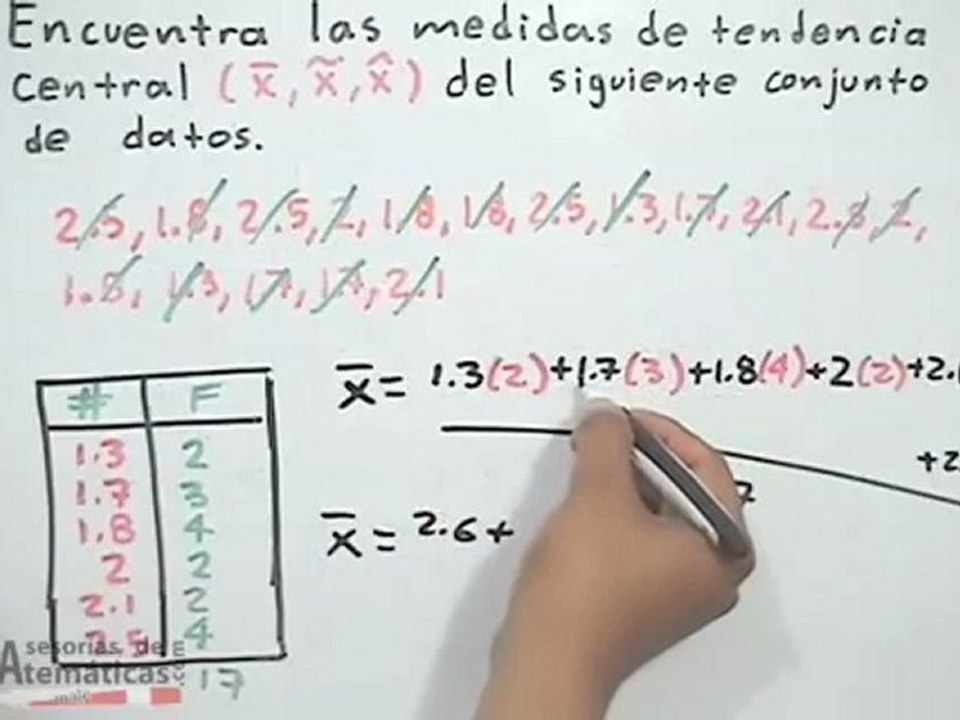 Encuentra las medidas de tendencia
central (x̄, x̃, x̂) del siguiente conjunto
de datos.
2.5, 1.8, 2.5, 2, 1.8, 1.8, 2.5, 1.3, 1.7, 2.1, 2.5, 2,
1.8, 1.3, 1.7, 1.7, 2.1
x̄ = 1.3(2)+1.7(3)+1.8(4)+2(2)+2.
+2
7
x̄ = 2.6+
# F
1.3 2
1.7 3
1.8 4
2 2
2.1 2
2.5 4
17
Asesorías de
Matemáticas